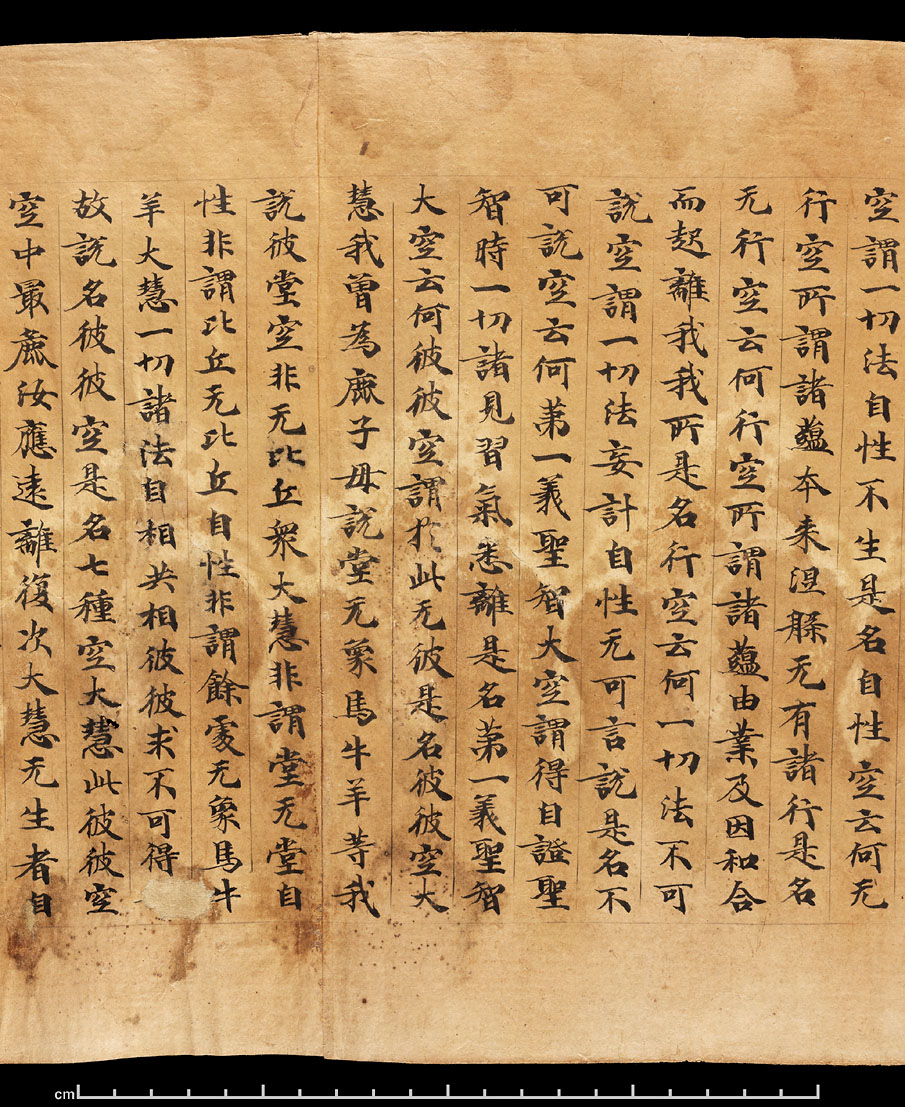 空謂一切法自性不生是名自性空云何无
行空所謂諸蘊本来涅槃无有諸行是名
无行空云何行空所謂諸蘊由業及因和合
而起離我我所是名行空云何一切法不可
說空謂一切法妄計自性无可言說是名不
可說空云何苐一義聖智大空謂得自證聖
智時一切諸見習氣悉離是名苐一義聖智
大空云何彼彼空謂扵此无彼是名彼彼空大
慧我曾為鹿子母說堂无象馬牛羊等我
說彼堂空非无比丘衆大慧非謂堂无堂自
性非謂比丘无比丘自性非謂餘處无象馬牛
羊大慧一切諸法自相共相彼彼求不可得
故說名彼彼空是名七種空大慧此彼彼空
空中最麁汝應遠離復次大慧无生者自
cm